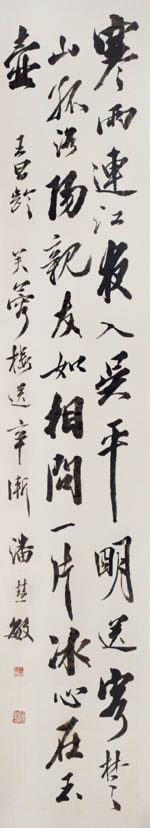 寒雨連江夜入吳平明送客楚
山孤洛陽親友如相問一片冰心在玉
壺 王昌齡 芙蓉樓送辛漸 潘慧敏